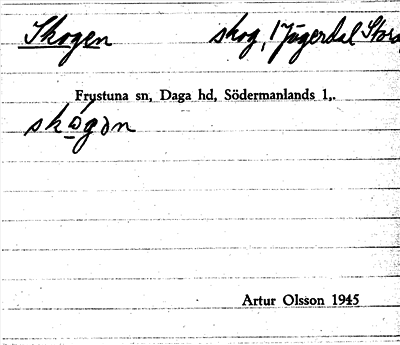 Skogen skog, i Jägerdal Stora
Frustuna sn, Daga hd, Södermanlands l,.
Artur Olsson 1945